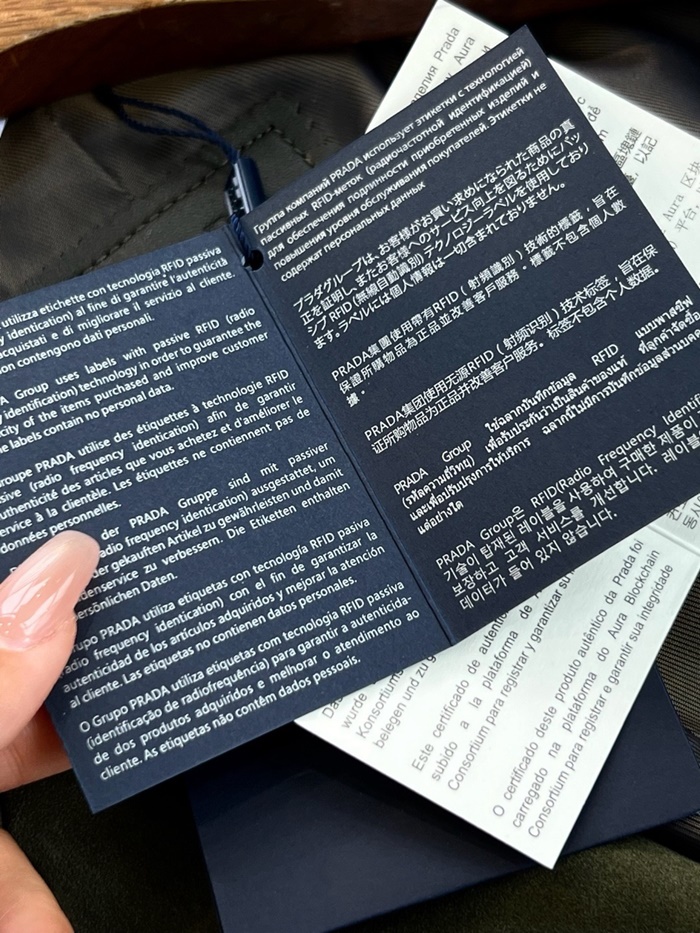 utilizza etichette con tecnologia RFID passiva
identity) al fine di garantire l'autenticità
acquistati e di migliorare il servizio al cliente.
non contengono dati personali.
Group uses labels with passive RFID (radio
identification) technology in order to guarantee the
of the items purchased and improve customer
labels contain no personal data.
PRADA utilise des étiquettes à technologie RFID
(radio frequency identication) afin de garantir
authenticité des articles que vous achetez et d'améliorer le
service à la clientèle. Les étiquettes ne contiennent pas de
données personnelles.
der PRADA Gruppe sind mit passiver
radio frequency identication) ausgestattet, um
der gekauften Artikel zu gewährleisten und damit
zu verbessern. Die Etiketten enthalten
persönlichen Daten.
Grupo PRADA utiliza etiquetas con tecnología RFID pasiva
radio frequency identication) con el fin de garantizar la
autenticidad de los artículos adquiridos y mejorar la atención
al cliente. Las etiquetas no contienen datos personales.
O Grupo PRADA utiliza etiquetas com tecnologia RFID passiva
(identificação de radiofrequência) para garantir a autenticida-
de dos produtos adquiridos e melhorar o atendimento ao
cliente. As etiquetas não contêm dados pessoais.
Группа компаний PRADA использует этикетки с технологией
пассивных RFID-меток (радиочастотной идентификацией)
для обеспечения подлинности приобретенных изделий и
повышения уровня обслуживания покупателей. Этикетки не
содержат персональных данных
プラダグループは、お客様がお買い求めになられた商品の真
正を証明し、またお客様へのサービス向上を図るためにパッ
シブRFID(無線自動識別)テクノロジーラベルを使用しており
ます。ラベルには個人情報は一切含まれておりません。
PRADA集團使用帶有RFID（射頻識別）技術的標籤，旨在
保證所購物品為正品並改善客戶服務。標籤不包含個人數
據。
PRADA集团使用无源RFID（射频识别）技术标签，旨在保
证所购物品为正品并改善客户服务。标签不包含个人数据。
PRADA Group ใช้ฉลากบันทึกข้อมูล RFID แบบพาสซีฟ
(รหัสความถี่วิทยุ) เพื่อรับประกันว่าเป็นสินค้าของแท้ ที่ลูกค้าจัดซื้อ
และเพื่อปรับปรุงการให้บริการ ฉลากนี้ไม่มีการบันทึกข้อมูลส่วนบุคคล
แต่อย่างใด
PRADA Group은 RFID(Radio Frequency
기술이 탑재된 레이블을 사용하여 구매한 제품의
보장하고 고객 서비스를 개선합니다. 레이블
데이터가 들어 있지 않습니다.
Prada
Aura
區塊鏈
以記
Aura 区块
平台，
wurde
Konsortium
belegen und
Este certificado de
subido a la plataforma de
Consortium para registrar y garantizar su
O certificado deste produto autêntico da Prada foi
carregado na plataforma do Aura Blockchain
Consortium para registrar e garantir sua integridade